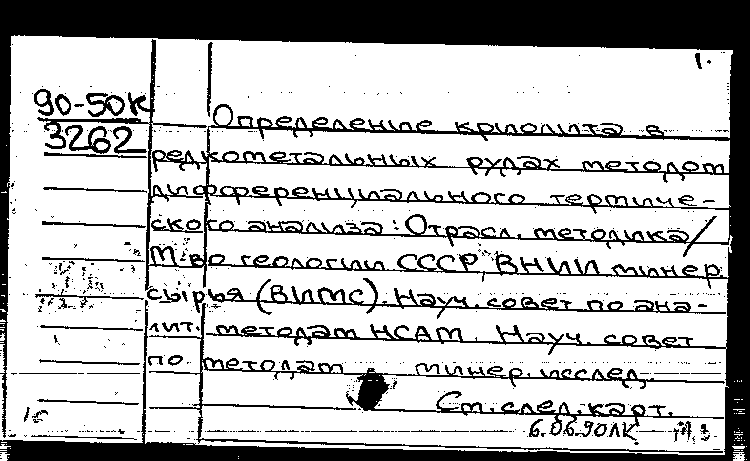 1.
90-50К
3262
Определение криолита в
редкометальных рудах методом
дифференциального термиче-
ского анализа: Отрасл. методика/
М-во геологии СССР, ВНИИ минер.
сырья (ВИМС). Науч. совет по ана-
лит. методам НСАМ. Науч. совет
по методам минер. исслед.
См. след. карт.
6.06.90ЛК